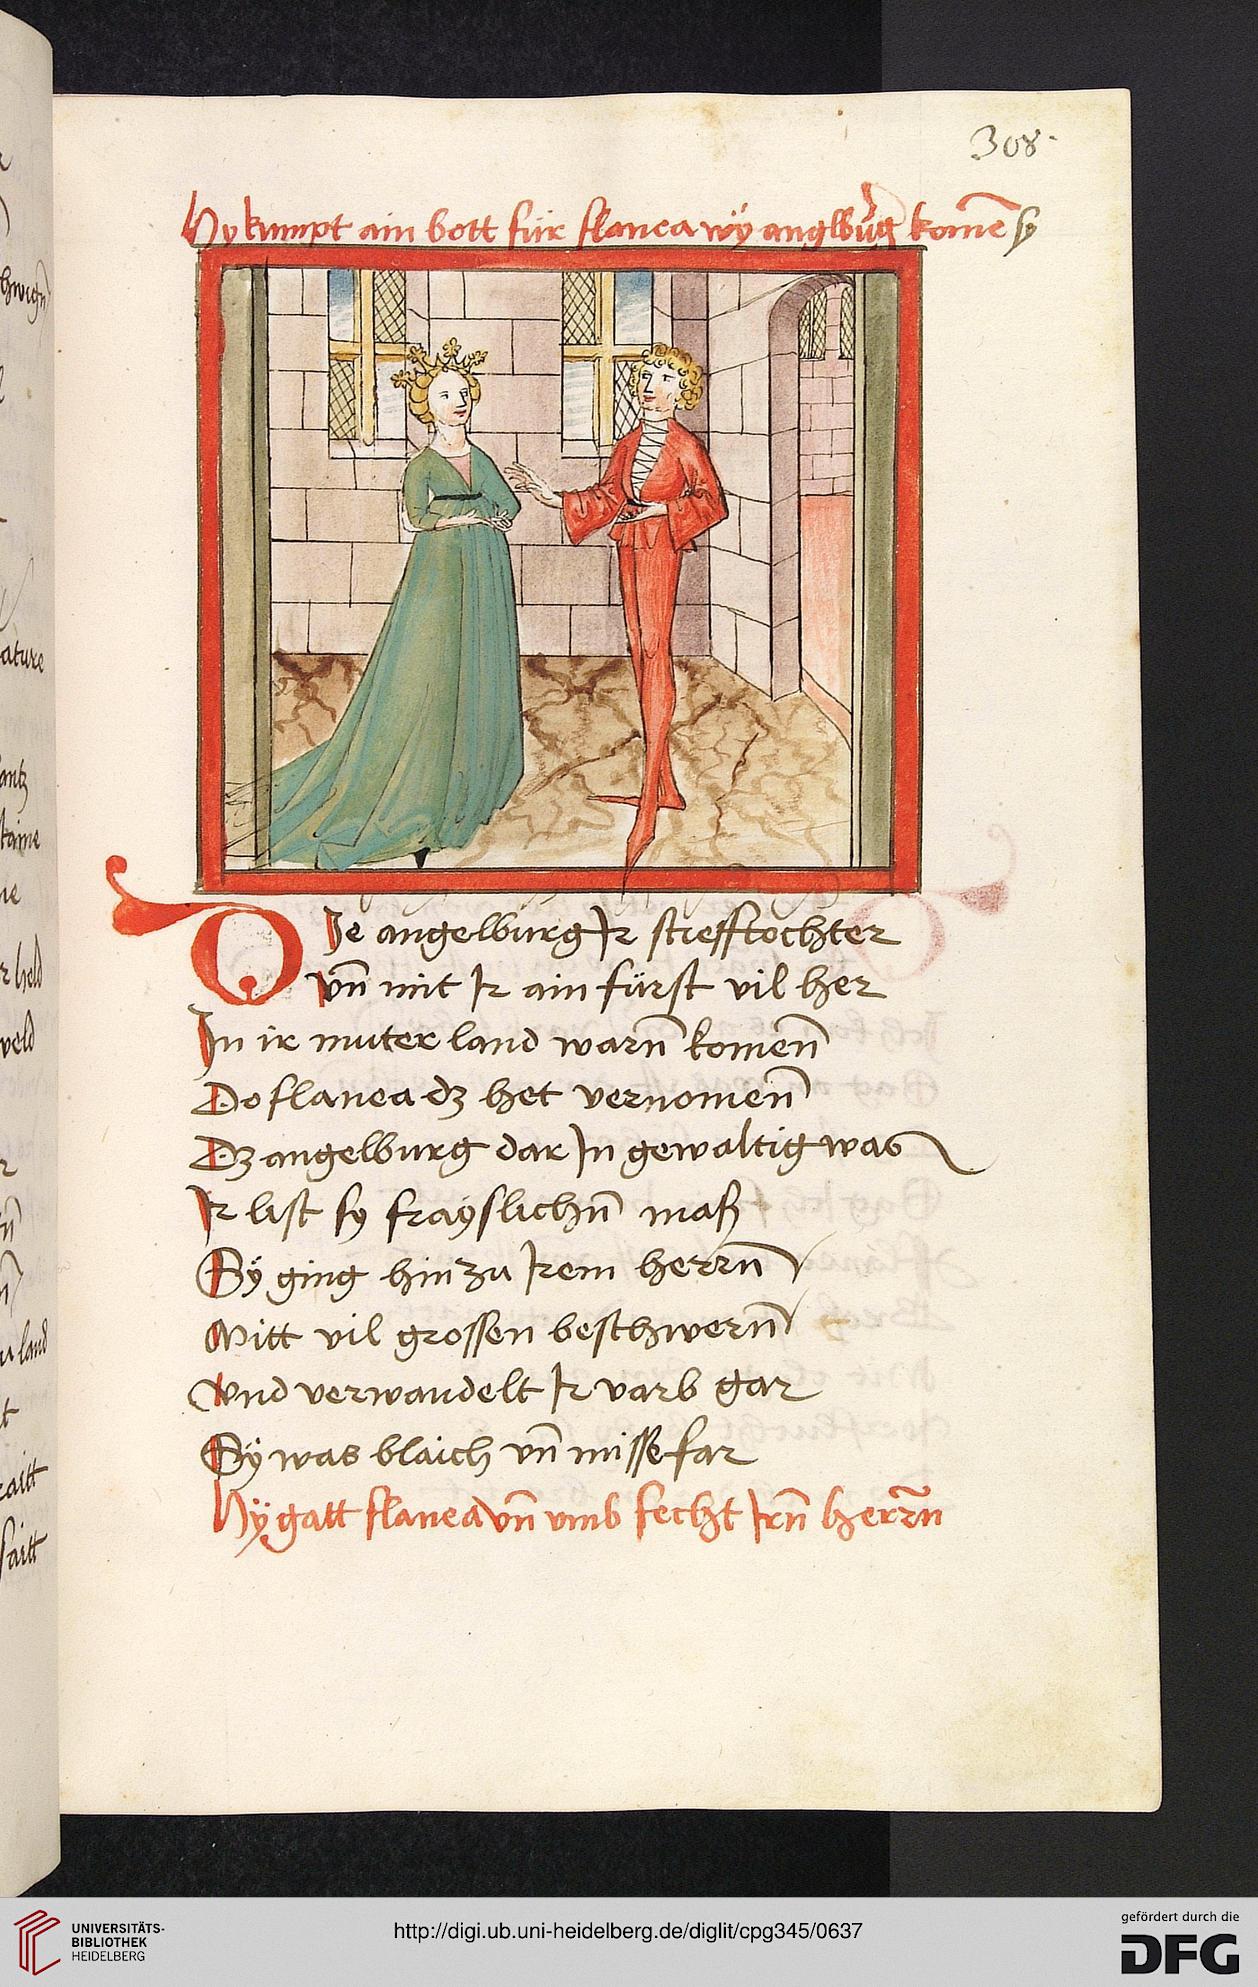 308
Hy kumpt ain bott für flanea wÿ anglburg komē sy
Die angelburg Ir stieffdochter
vn̄ mit Ir ain fürst vil her
In ir muter land warn̄ komen̄
Do flanea dz het vernomen̄
Dz angelburg dar In gewaltig was
Ir list sy frayslichn̄ maß
Sÿ ging hin zu Irem herrn̄
Mitt vil grossen beschwern̄
Vnd verwandelt Ir varb gar
Sÿ was blaich vn̄ missefar
Hÿ gatt flanea vn̄ vmb fecht Irn̄ herrn̄
UNIVERSITÄTS-
BIBLIOTHEK
HEIDELBERG
http://digi.ub.uni-heidelberg.de/diglit/cpg345/0637
gefördert durch die
DFG